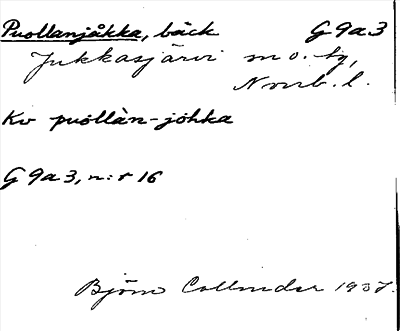 Puollanjåkka, bäck G 9a3
Jukkasjärvi sn o. tg,
Norrb. l.
Kv puollàn-johka
G 9a3, n:r 16
Björn Collinder 1937.